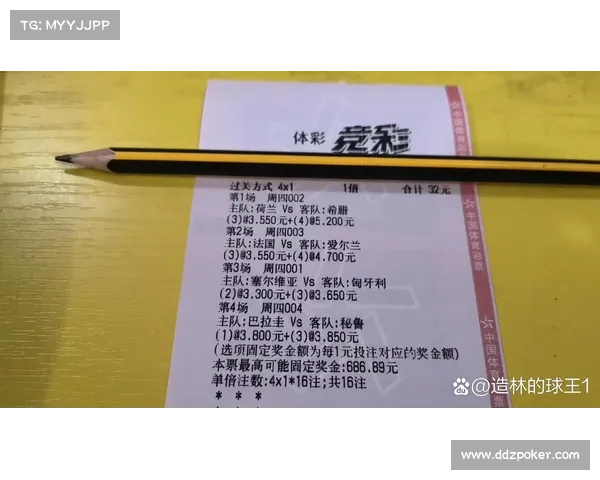 TG: MYYJJPP
体彩 竞彩
过关方式 4x1 1倍 合计 32元
第1场 周四002
主队:荷兰 Vs 客队:希腊
(3)@3.550元+(4)@5.200元
第2场 周四003
主队:法国 Vs 客队:爱尔兰
(3)@3.550元+(4)@4.700元
第3场 周四001
主队:塞尔维亚 Vs 客队:匈牙利
(2)@3.300元+(3)@3.650元
第4场 周四004
主队:巴拉圭 Vs 客队:秘鲁
(1)@3.800元+(3)@3.850元
(选项固定奖金额为每1元投注对应的奖金额)
本票最高可能固定奖金:686.89元
单倍注数:4x1*16注;共16注
* * *
中国体育彩票
中国体育彩票
中国体育
票
@造林的球王1
www.ddzpoker.com